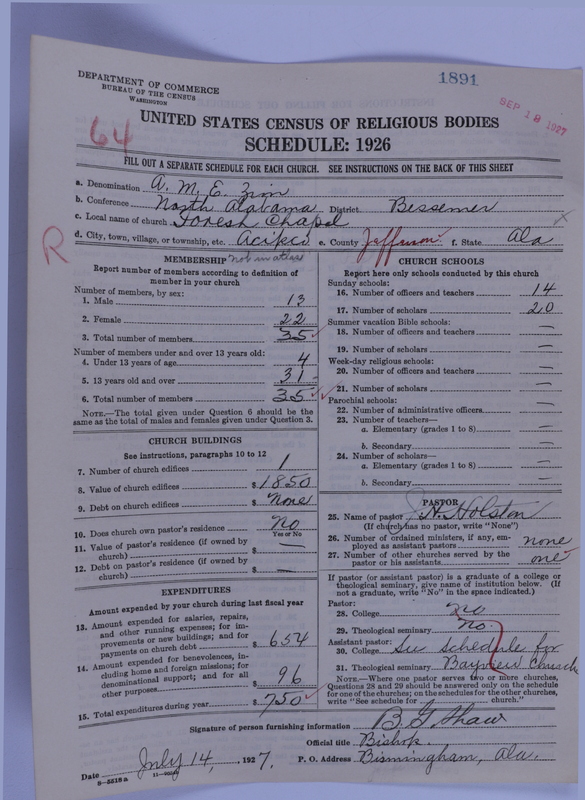 1891
DEPARTMENT OF COMMERCE
BUREAU OF THE CENSUS
WASHINGTON
SEP 18 1927
64
UNITED STATES CENSUS OF RELIGIOUS BODIES
SCHEDULE: 1926
FILL OUT A SEPARATE SCHEDULE FOR EACH CHURCH. SEE INSTRUCTIONS ON THE BACK OF THIS SHEET
a. Denomination A. M. E. Zion
b. Conference North Alabama District Bessemer
c. Local name of church Toresh Chapel
d. City, town, village, or township, etc. Acipco e. County Jefferson f. State Ala
R
MEMBERSHIP not in atlas
Report number of members according to definition of
member in your church
Number of members, by sex:
1. Male 13
2. Female 22
3. Total number of members 35
Number of members under and over 13 years old:
4. Under 13 years of age 4
5. 13 years old and over 31
6. Total number of members 35
NOTE.—The total given under Question 6 should be the
same as the total of males and females given under Question 3.
CHURCH BUILDINGS
See instructions, paragraphs 10 to 12
7. Number of church edifices 1
8. Value of church edifices $1850
9. Debt on church edifices $ None
10. Does church own pastor's residence No
Yes or No
11. Value of pastor's residence (if owned by
church) $ —
12. Debt on pastor's residence (if owned by
church) $ —
EXPENDITURES
Amount expended by your church during last fiscal year
13. Amount expended for salaries, repairs,
and other running expenses; for im-
provements or new buildings; and for
payments on church debt $ 654
14. Amount expended for benevolences, in-
cluding home and foreign missions; for
denominational support; and for all
other purposes $ 96
15. Total expenditures during year $ 750
CHURCH SCHOOLS
Report here only schools conducted by this church
Sunday schools:
16. Number of officers and teachers 14
17. Number of scholars 20
Summer vacation Bible schools:
18. Number of officers and teachers —
19. Number of scholars —
Week-day religious schools:
20. Number of officers and teachers —
21. Number of scholars —
Parochial schools:
22. Number of administrative officers —
23. Number of teachers—
a. Elementary (grades 1 to 8) —
b. Secondary —
24. Number of scholars—
a. Elementary (grades 1 to 8) —
b. Secondary —
PASTOR
25. Name of pastor Holston
(If church has no pastor, write "None")
26. Number of ordained ministers, if any, em-
ployed as assistant pastors none
27. Number of other churches served by the
pastor or his assistants one
If pastor (or assistant pastor) is a graduate of a college or
theological seminary, give name of institution below. (If
not a graduate, write "No" in the space indicated.)
Pastor:
28. College no
29. Theological seminary no.
Assistant pastor:
30. College See Schedule for
31. Theological seminary Bayview Church
NOTE.—Where one pastor serves two or more churches,
Questions 28 and 29 should be answered only on the schedule
for one of the churches; on the schedules for the other churches,
write "See schedule for church."
Signature of person furnishing information B. G. Shaw
Official title Bishop.
Date July 14, 1927. P. O. Address Birmingham, Ala.